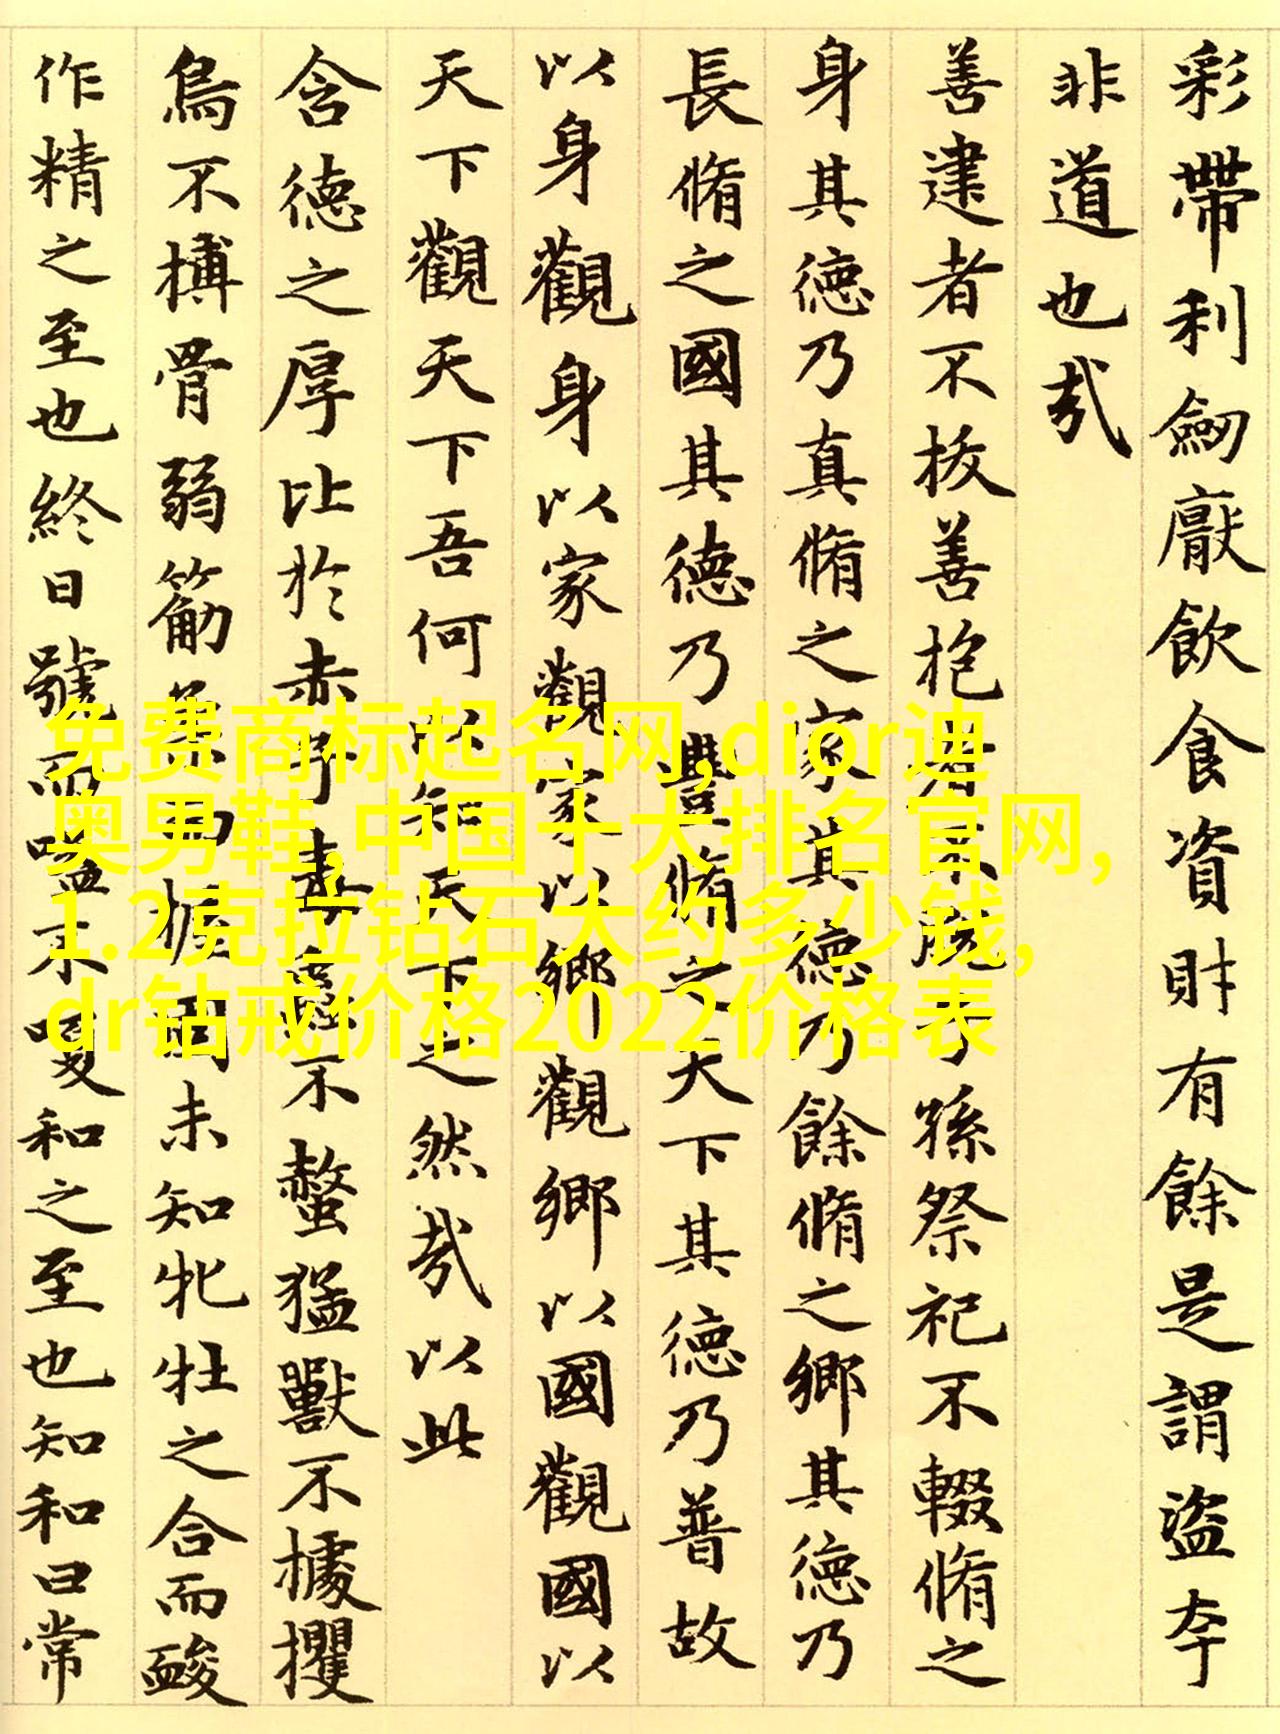 彩帶利劒厭飲食資財有餘是謂盜夸
非道也哉
善建者不拔善抱者不脫子孫祭祀不輟脩之
身其德乃真脩之家其德乃餘脩之鄉其德乃
長脩之國其德乃豐脩之天下其德乃普故
以身觀身以家觀家以鄉觀鄉以國觀國以
天下觀天下吾何以知天下之然哉以此
含德之厚比於赤子毒蟲不螫猛獸不據攫
鳥不搏骨弱筋柔而握固未知牝牡之合而䘒
作精之至也終日號而嗌不嗄和之至也知和曰常
免费商标起名网,dior迪
奥男鞋,中国十大排名官网,
1.2克拉钻石大约多少钱,
dr钻戒价格2022价格表